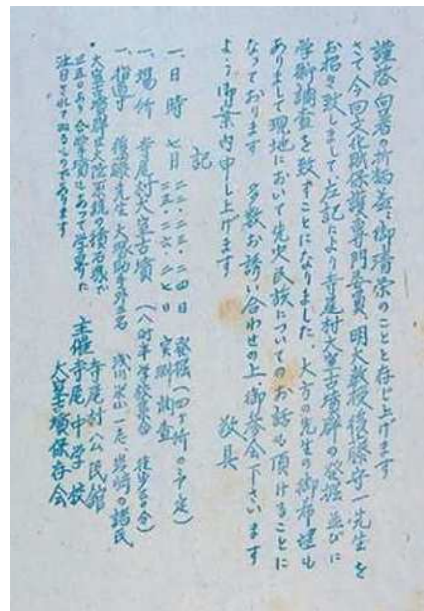 謹啓 向暑の折柄益々御清栄のことと存じ上げます
さて今回文化財保護専門委員、明大教授後藤守一先生を
お招き致しまして左記により寺尾村大室古墳群の発掘並びに
学術調査を致すことになりました、大方の先生の御希望も
ありまして現地において先史民族についてのお話も頂けることに
なっております 多数お誘い合わせの上、御参会下さいます
よう御案内申し上げます
敬具
記
一、日時 七月
二二、二三、二四日 発掘(四ヶ所の予定)
二五、二六、二七日 実測調査
一、場所 寺尾村大室古墳(八時半学校集合 徒歩三〇分)
一、指導 後藤先生 大塚助手外五名
米山一志、岩崎の諸氏
大室古墳群は大陸系統の積石塚で
あって学界に
注目されて
主催 寺尾村公民館
寺尾中学校
大室古墳保存会